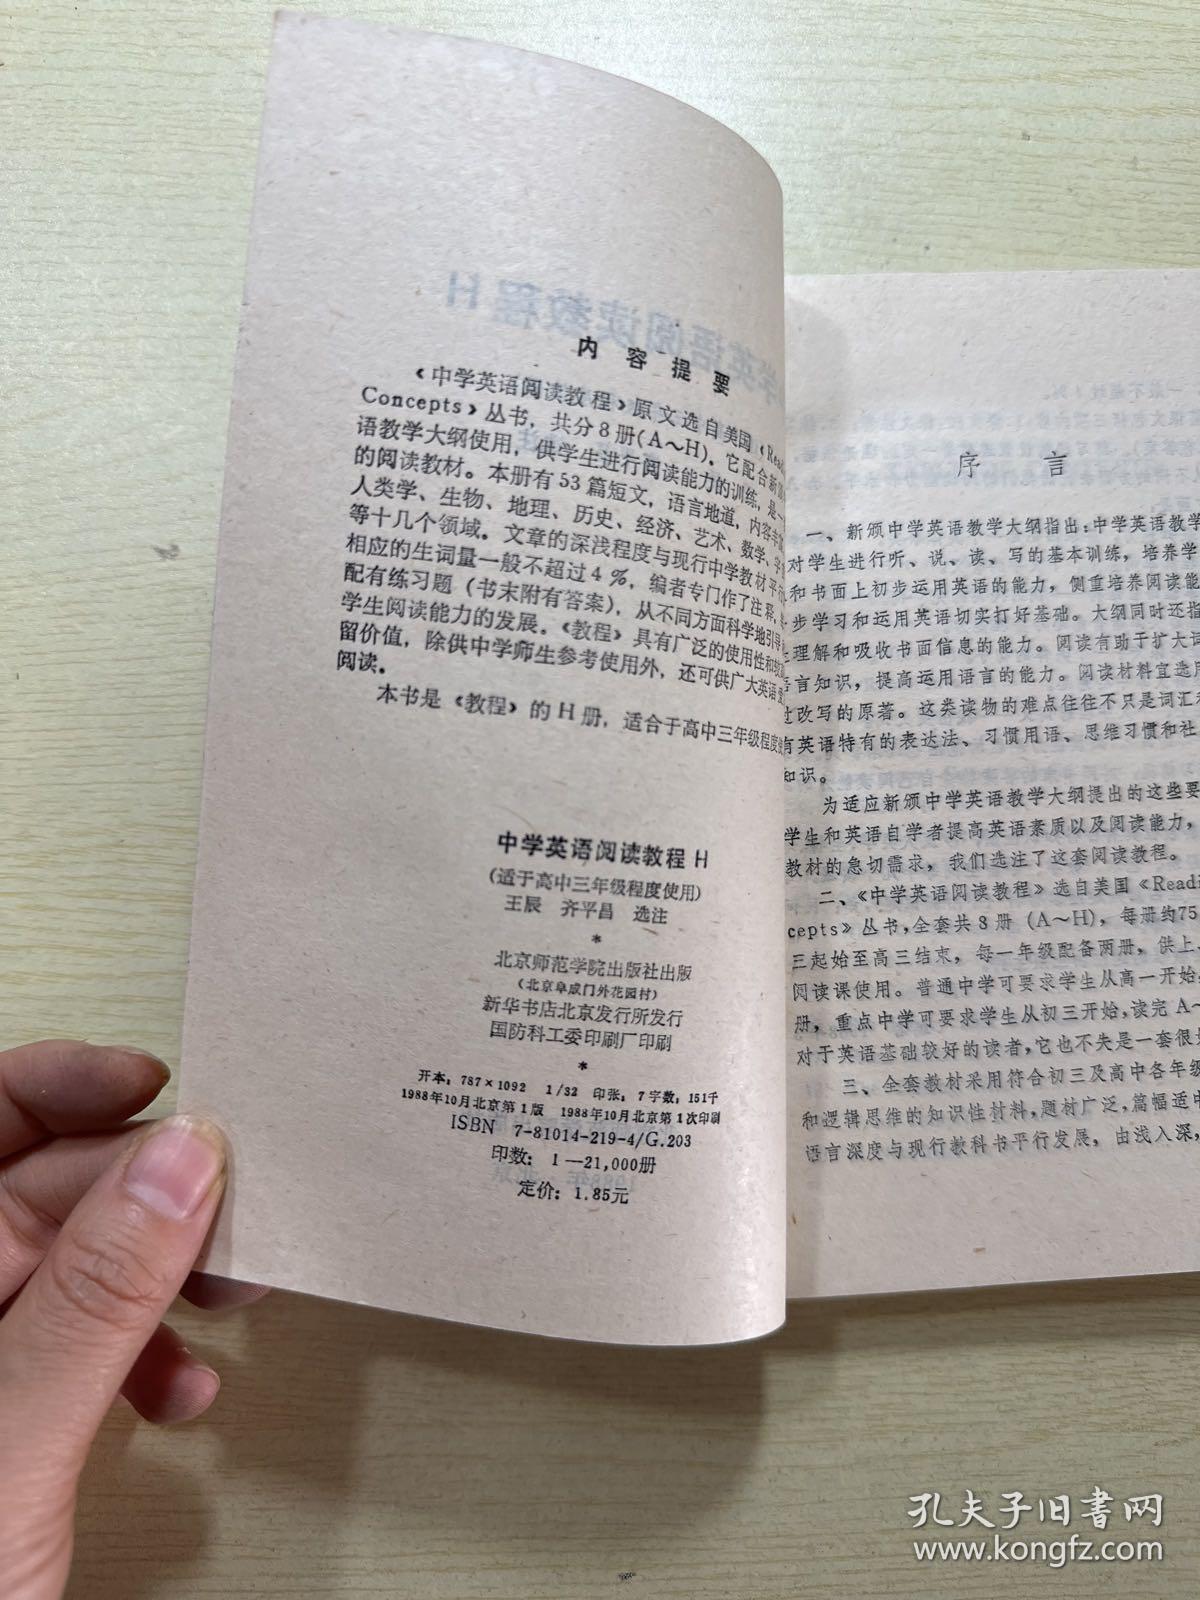 内容提要
《中学英语阅读教程》原文选自美国《Readi
Concepts》丛书，共分8册(A～H)。它配合新颁
语教学大纲使用，供学生进行阅读能力的训练，是一
的阅读教材。本册有53篇短文，语言地道，内容丰
人类学、生物、地理、历史、经济、艺术、数学、字
等十几个领域。文章的深浅程度与现行中学教材平行
相应的生词量一般不超过4%，编者专门作了注释。
配有练习题（书末附有答案），从不同方面科学地引导
学生阅读能力的发展。《教程》具有广泛的使用性和
留价值，除供中学师生参考使用外，还可供广大英语
阅读。
本书是《教程》的H册，适合于高中三年级程度
中学英语阅读教程H
(适于高中三年级程度使用)
王辰 齐平昌 选注
*
北京师范学院出版社出版
(北京阜成门外花园村)
新华书店北京发行所发行
国防科工委印刷厂印刷
*
开本：787×1092 1/32 印张：7 字数：151千
1988年10月北京第1版 1988年10月北京第1次印刷
ISBN 7-81014-219-4/G.203
印数：1—21,000册
定价：1.85元
序言
一、新颁中学英语教学大纲指出：中学英语教学
对学生进行听、说、读、写的基本训练，培养学
和书面上初步运用英语的能力，侧重培养阅读能
步学习和运用英语切实打好基础。大纲同时还指
理解和吸收书面信息的能力。阅读有助于扩大词
言知识，提高运用语言的能力。阅读材料宜选用
过改写的原著。这类读物的难点往往不只是词汇
有英语特有的表达法、习惯用语、思维习惯和社
知识。
为适应新颁中学英语教学大纲提出的这些要
学生和英语自学者提高英语素质以及阅读能力，
教材的急切需求，我们选注了这套阅读教程。
二、《中学英语阅读教程》选自美国《Readi
cepts》丛书，全套共8册（A～H），每册约75
三起始至高三结束，每一年级配备两册，供上
阅读课使用。普通中学可要求学生从高一开始
册，重点中学可要求学生从初三开始，读完A～
对于英语基础较好的读者，它也不失是一套很
三、全套教材采用符合初三及高中各年级
和逻辑思维的知识性材料，题材广泛，篇幅适中
语言深度与现行教科书平行发展，由浅入深，
孔夫子旧书网
www.kongfz.com